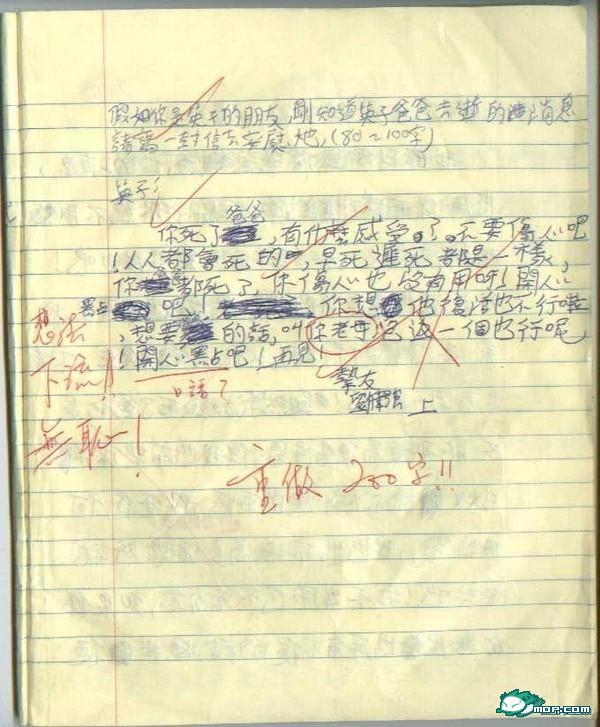 假如你是英子的朋友,剛知道英子爸爸去逝的消息
請寫一封信去安慰她,(80~100字)
英子:
爸爸
你死了,有什麼感受。了。不要傷心吧
!人人都會死的,早死遲死都是一樣,
你都死了,你傷心也沒有用呀!開心
黑占吧,你想他復活也不行啦
,想要的話,叫你老母
一個也行呢
!開心黑占吧!再見!
摯友
劉偉強 上
想法
下流!!
無恥!
口語?
重做 200字!!
MOP.COM